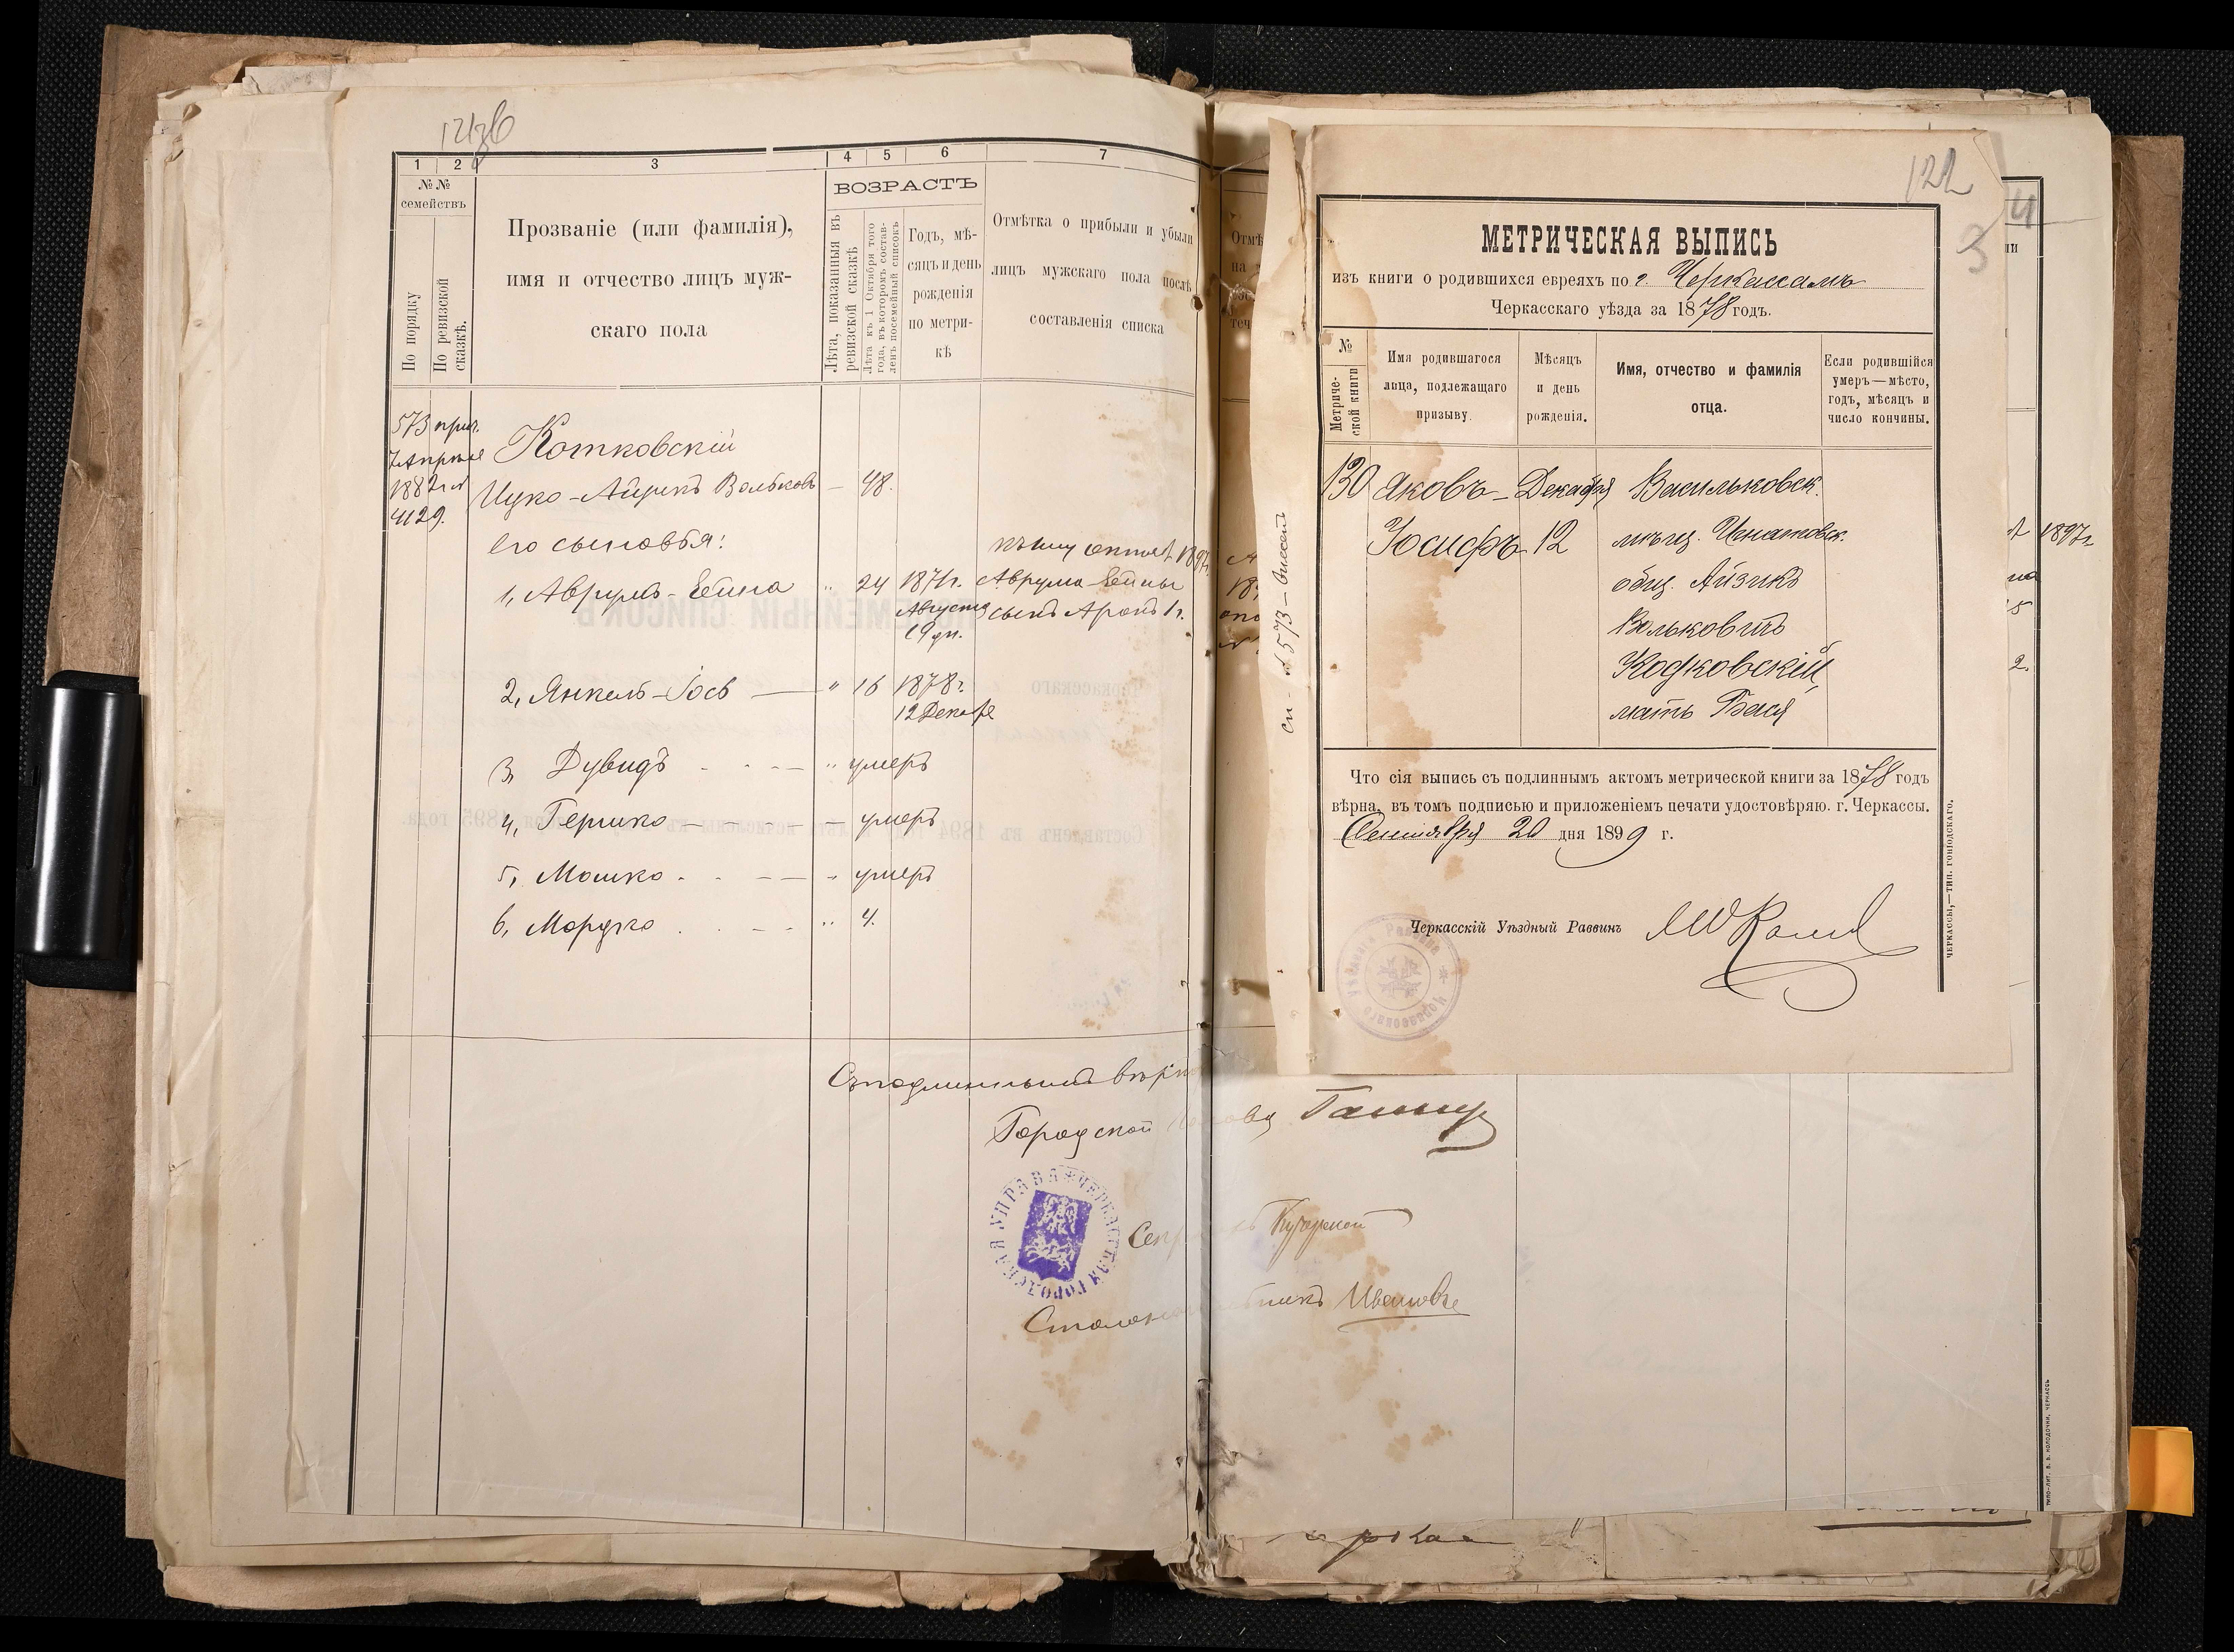 121об
1 2 3 4 5 6 7
№ №
семействъ
По порядку
По ревизской сказкѣ.
Прозваніе (или фамилія),
имя и отчество лицъ муж-
скаго пола
ВОЗРАСТЪ
Лѣта, показанныя въ
ревизской сказкѣ
Лѣта къ 1 Октября того
года, въ которомъ состав-
ленъ посемейный списокъ
Годъ, мѣ-
сяцъ и день
рожденія
по метри-
кѣ
Отмѣтка о прибыли и убыли
лицъ мужскаго пола послѣ
составленія списка
573 прич.
7 Апрѣля
1882 г. №
4129.
Котковскій
Ицко-Айзикъ Вольковъ — 48.
его сыновья:
1, Аврумъ-Бейна " 24 1871 г.
Августа
19 дн.
Аврума-Бейны
сынъ Аронъ 1 г.
2, Янкель-Іось — " 16 1878 г.
12 Декабр
3, Дувидъ - - — " умеръ
4, Гершко — — — умеръ
5, Мошко - - — — умеръ
6, Мордко . . - - " 4.
Съ подлиннымъ вѣрно
Городской Голова
ЧЕРКАССКАЯ ГОРОДСКАЯ УПРАВА
Ивановъ
122
3
4
МЕТРИЧЕСКАЯ ВЫПИСЬ
изъ книги о родившихся евреяхъ по г. Черкассамъ
Черкасскаго уѣзда за 1878 годъ.
№
Метриче-
ской книги
Имя родившагося
лица, подлежащаго
призыву.
Мѣсяцъ
и день
рожденія.
Имя, отчество и фамилія
отца.
Если родившійся
умеръ—мѣсто,
годъ, мѣсяцъ и
число кончины.
130 Яковъ- Декабря Васильковск.
Іосифъ 12 мѣщ. Игнатовск.
общ. Айзикъ
Вольковичъ
Кодковскій,
мать Бася
Что сія выпись съ подлиннымъ актомъ метрической книги за 1878 годъ
вѣрна, въ томъ подписью и приложеніемъ печати удостовѣряю. г. Черкассы.
Сентября 20 дня 1899 г.
Черкасскій Уѣздный Раввинъ
ЧЕРКАССЫ,—ТИП. ГОВІОДСКАГО.
1897 г.